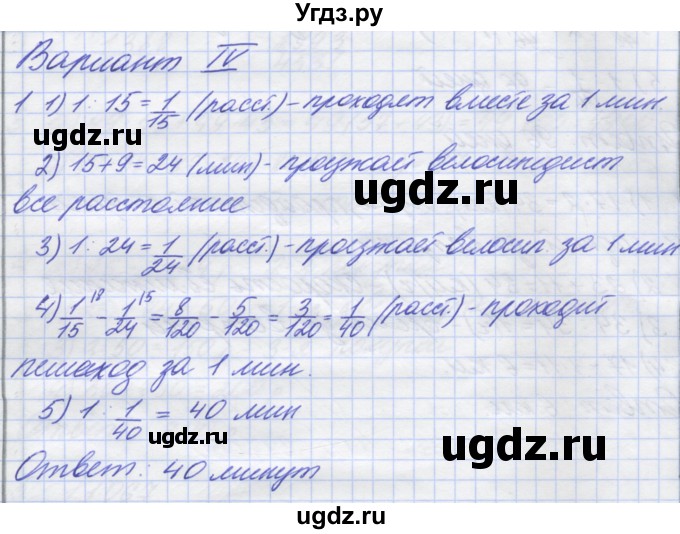 Угдз.ру
Вариант IV
1 1) 1 : 15 = 1/15 (расст.) - проходят вместе за 1 мин
2) 15 + 9 = 24 (мин) - проезжает велосипедист
все расстояние
3) 1 : 24 = 1/24 (расст.) - проезжает велосип. за 1 мин
4) 1/15 |8 - 1/24 |5 = 8/120 - 5/120 = 3/120 = 1/40 (расст.) - проходит
пешеход за 1 мин.
5) 1 : 1/40 = 40 мин
Ответ: 40 минут
ugdz.ru
ugdz.ru
ugdz.ru
ugdz.ru
ugdz.ru
ugdz.ru
ugdz.ru
ugdz.ru